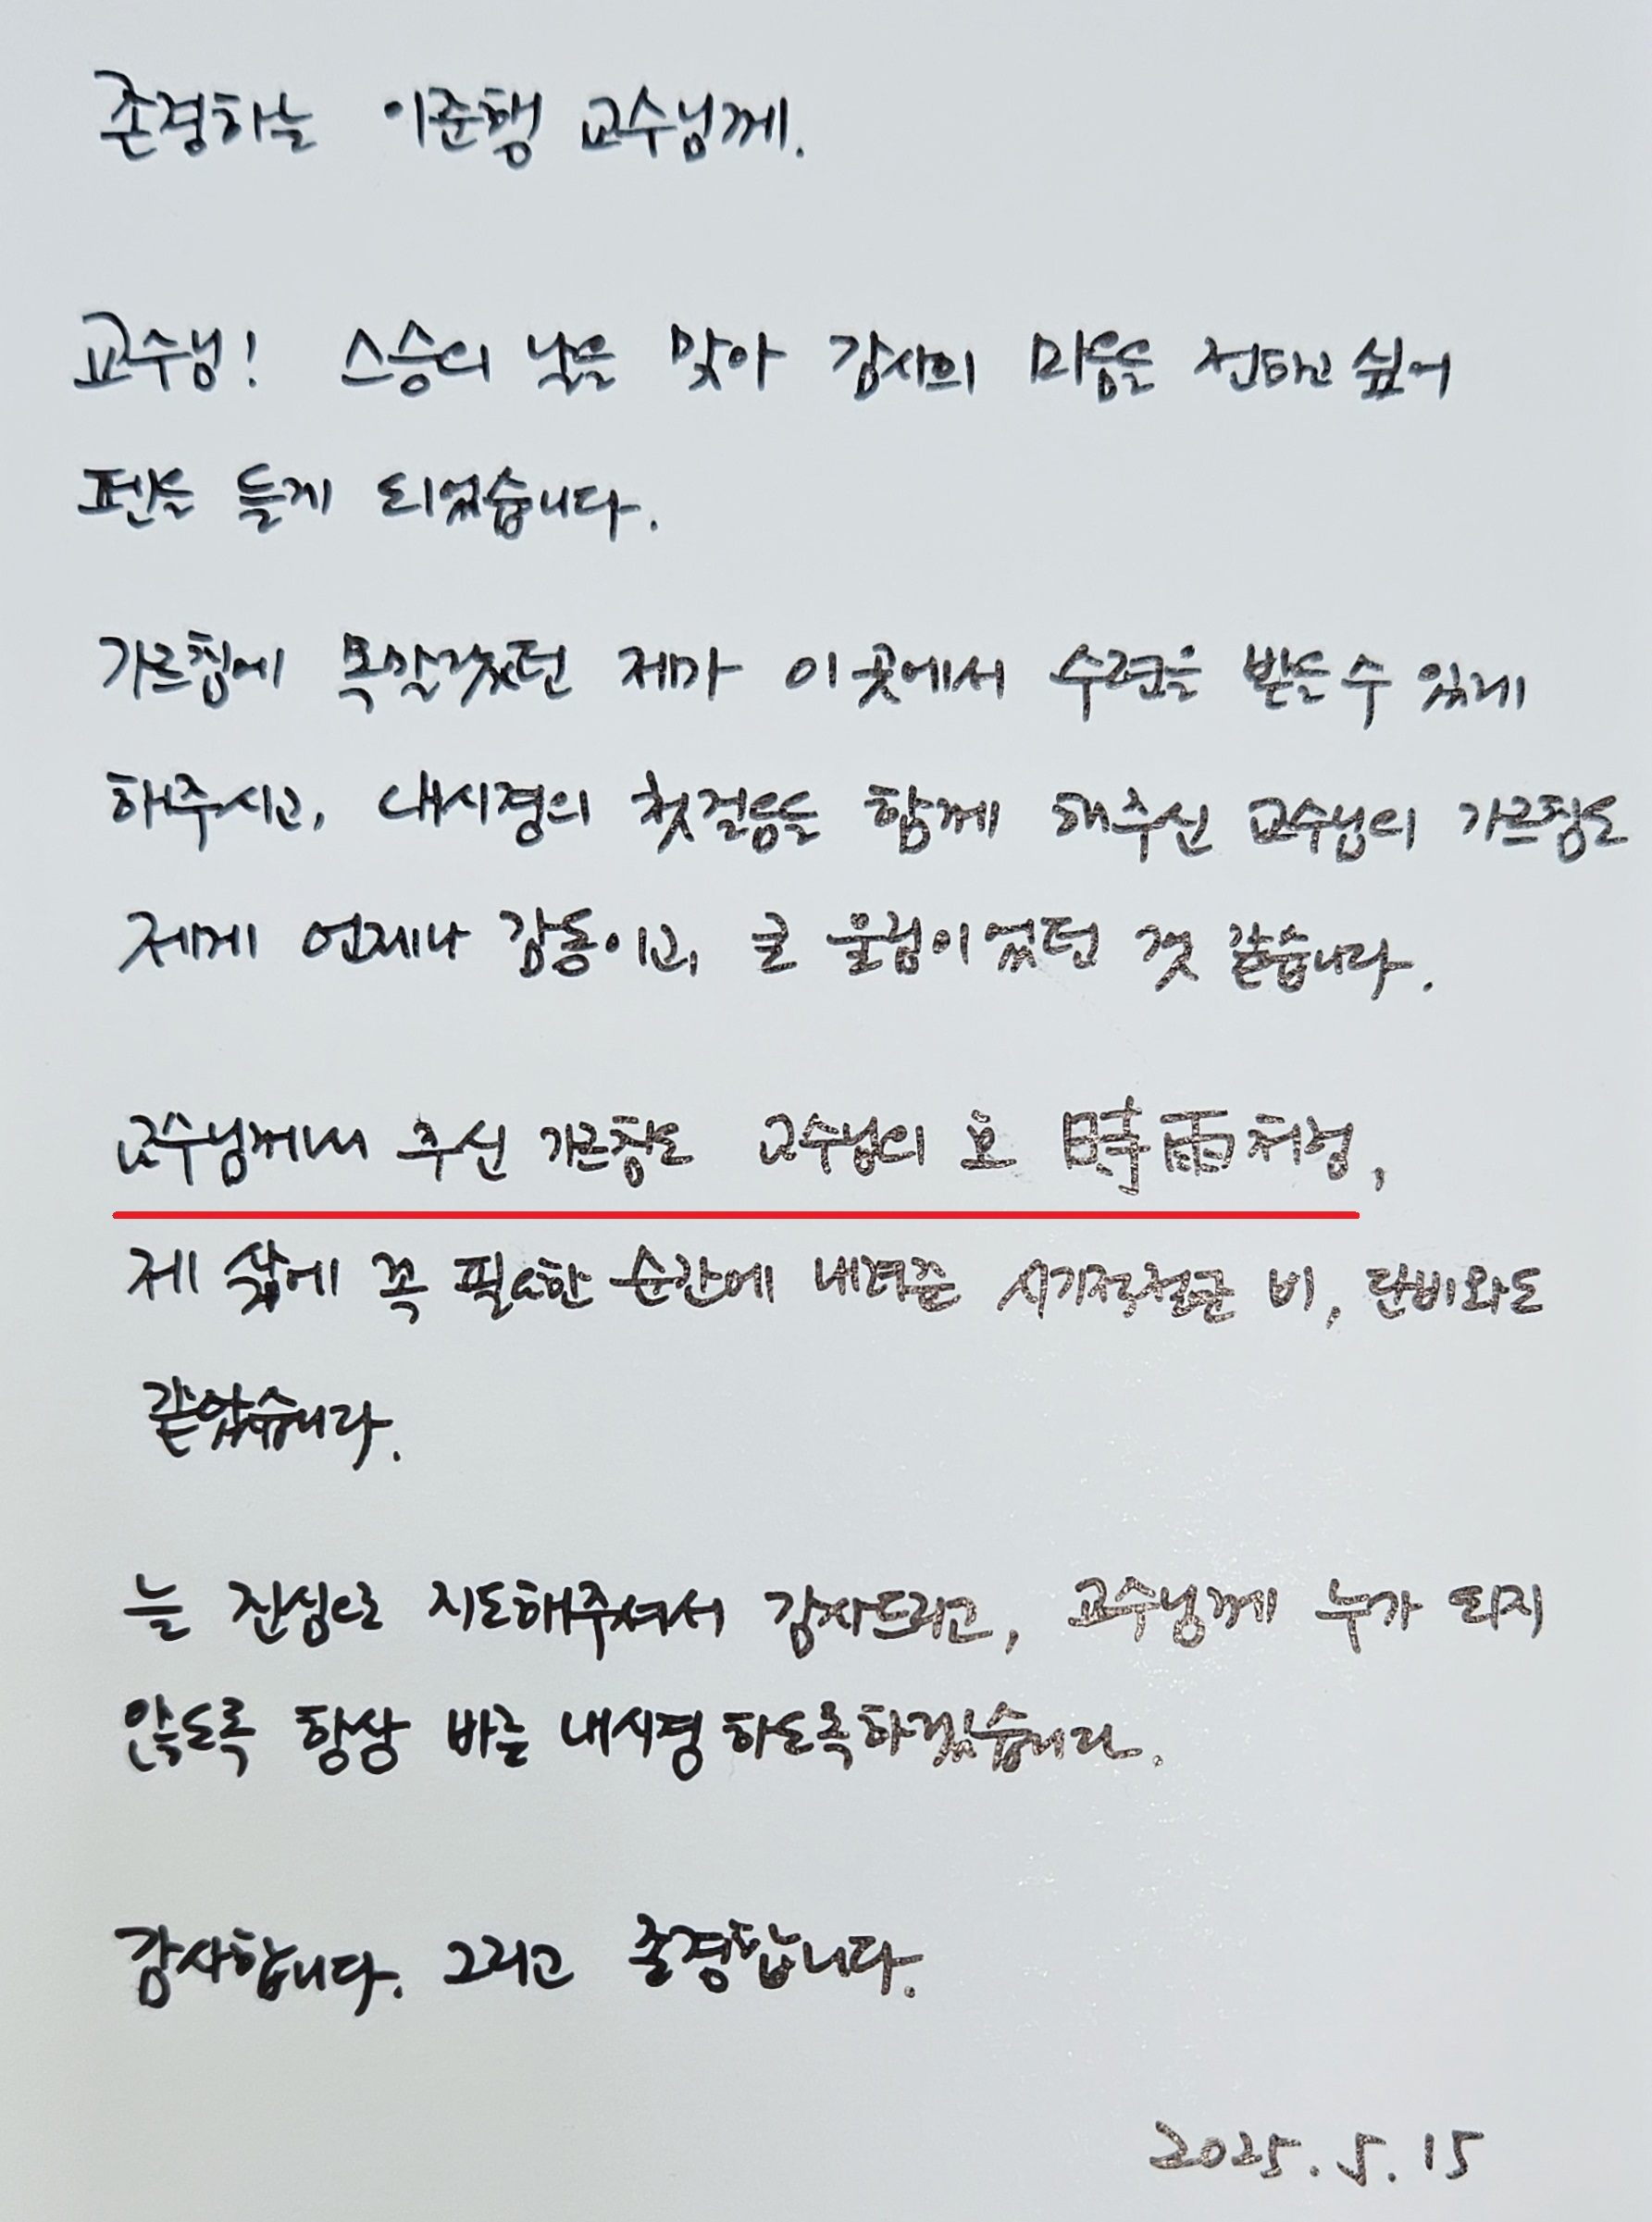 존경하는 이준행 교수님께.
교수님! 스승의 날을 맞아 감사의 마음을 전하고 싶어
펜을 들게 되었습니다.
가르침에 목말랐던 제가 이 곳에서 수련을 받을 수 있게
해주시고, 내시경의 첫걸음을 함께 해주신 교수님의 가르침도
제게 언제나 감동이고, 큰 울림이었던 것 같습니다.
교수님께서 주신 가르침도 교수님의 호 時雨처럼,
제 삶에 꼭 필요한 순간에 내려준 시기적절한 비, 단비와도
같았습니다.
늘 진심으로 지도해주셔서 감사드리고, 교수님께 누가 되지
않도록 항상 바른 내시경 하도록하겠습니다.
감사합니다. 그리고 존경합니다.
2025. 5. 15